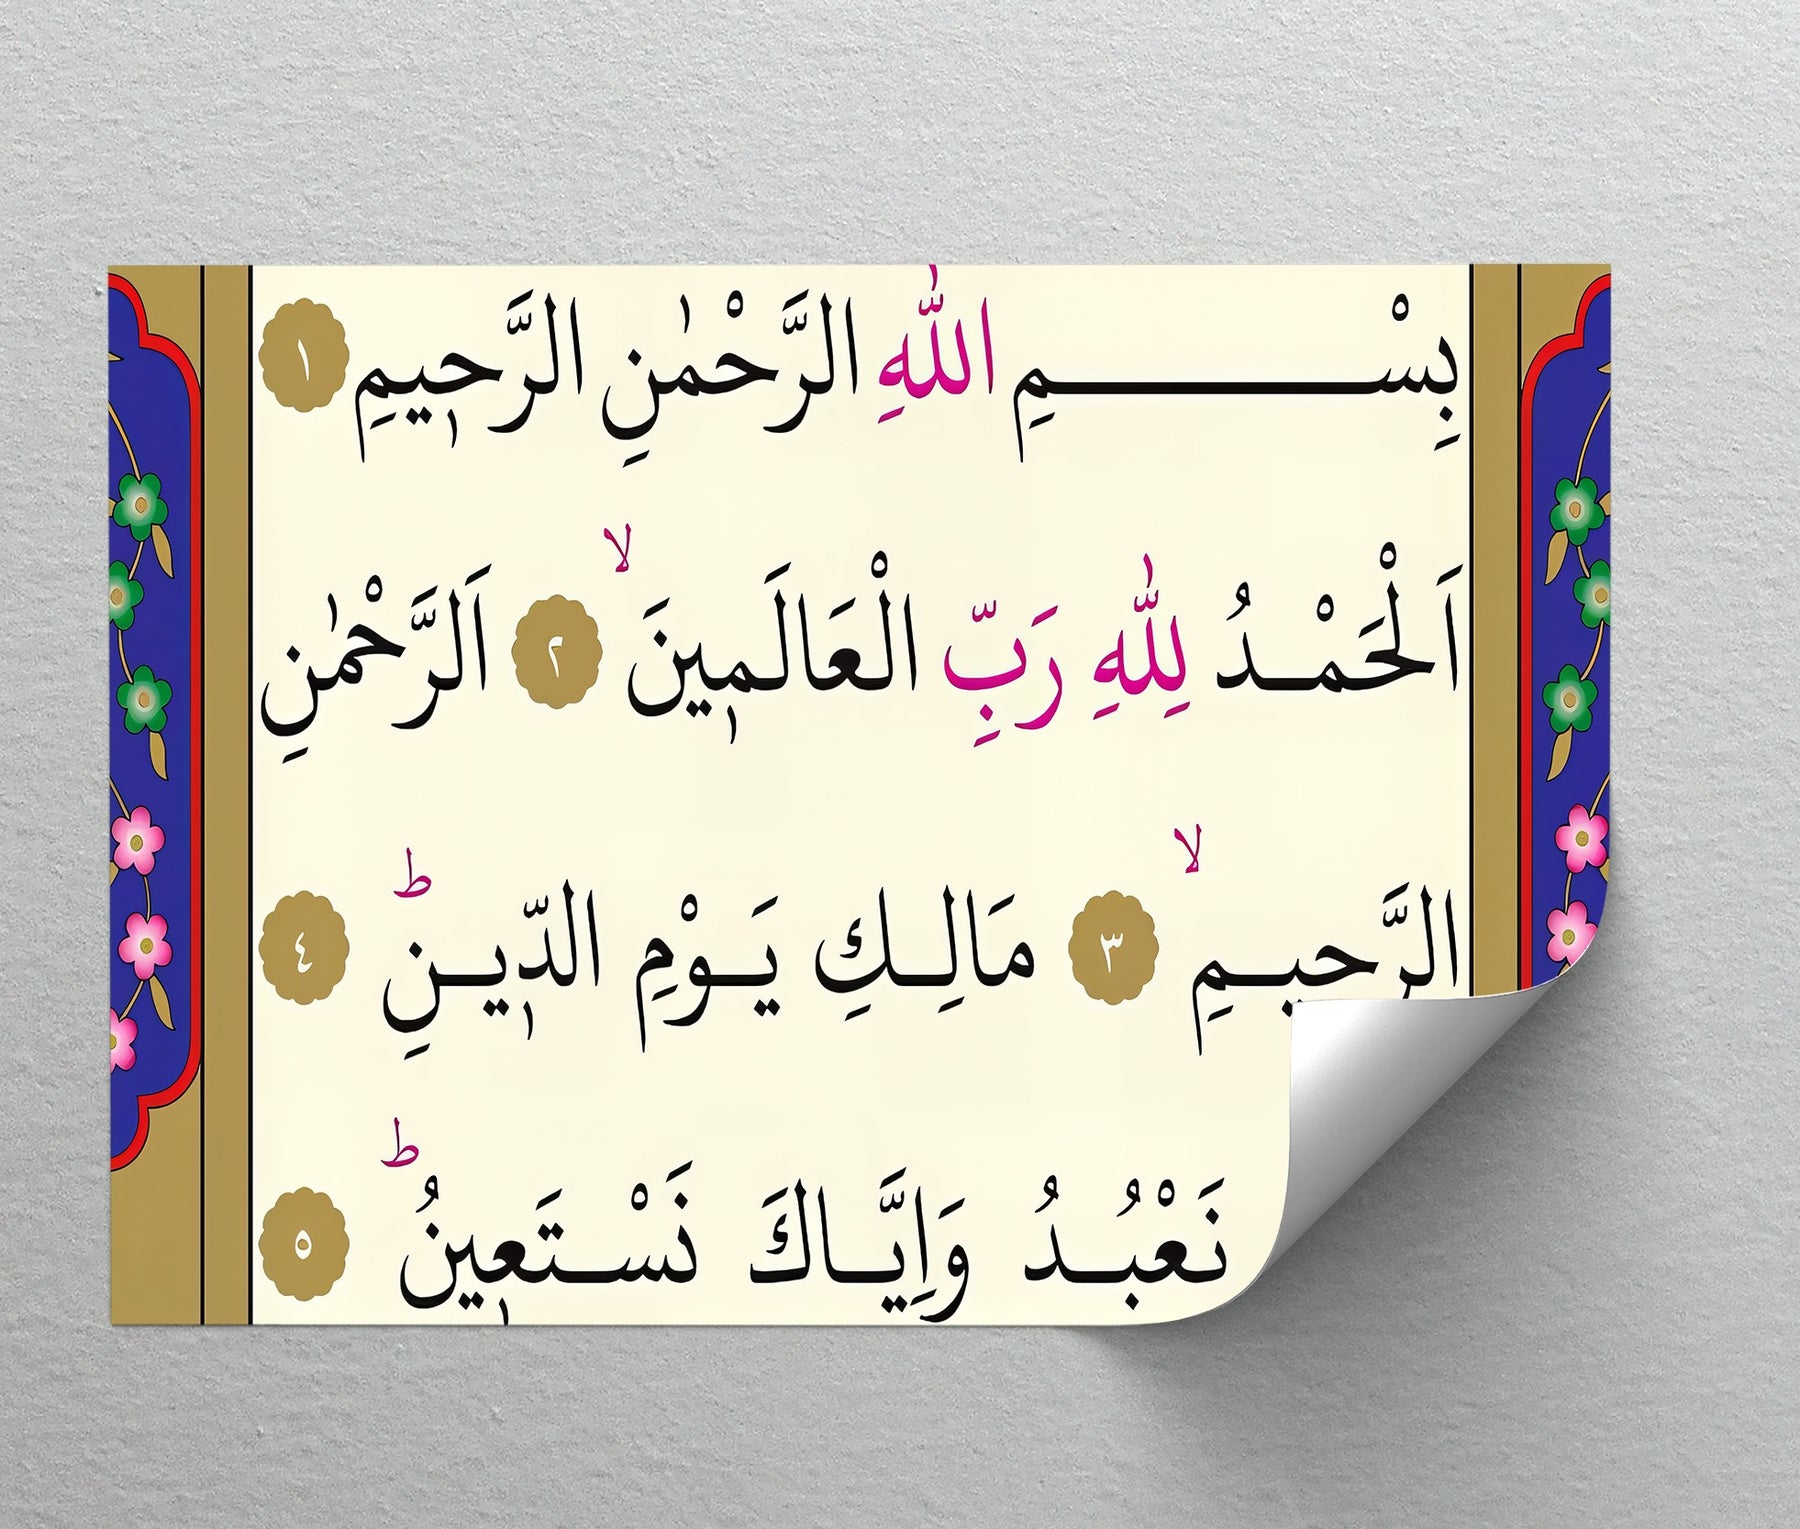 بِسْمِ اللّٰهِ الرَّحْمٰنِ الرَّح۪يمِ ١
اَلْحَمْدُ لِلّٰهِ رَبِّ الْعَالَم۪ينَ ۙ ٢ اَلرَّحْمٰنِ
الرَّحيمِ ۙ ٣ مَالِكِ يَوْمِ الدّ۪ينِ ۜ ٤
نَعْبُدُ وَاِيَّاكَ نَسْتَع۪ينُ ط ٥